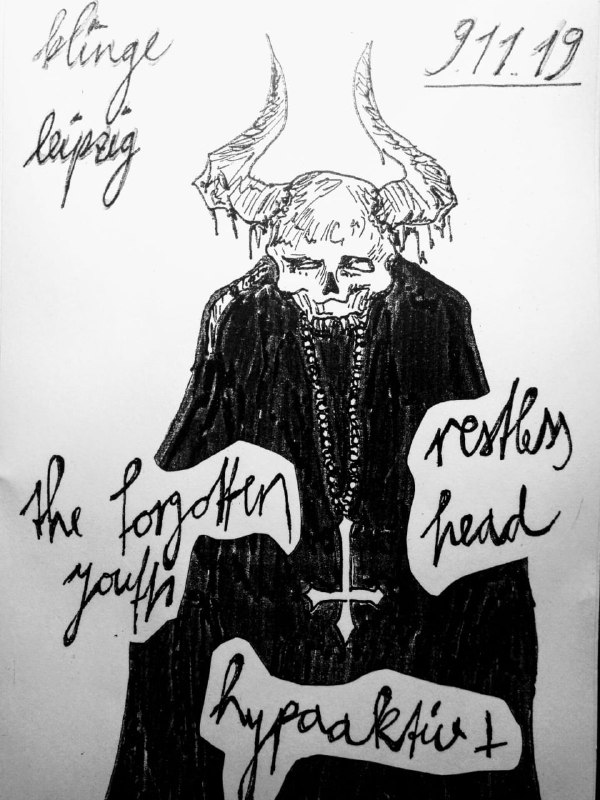 klinge
leipzig
9.11.19
the forgotten
youth
restless
head
hypaaktiv